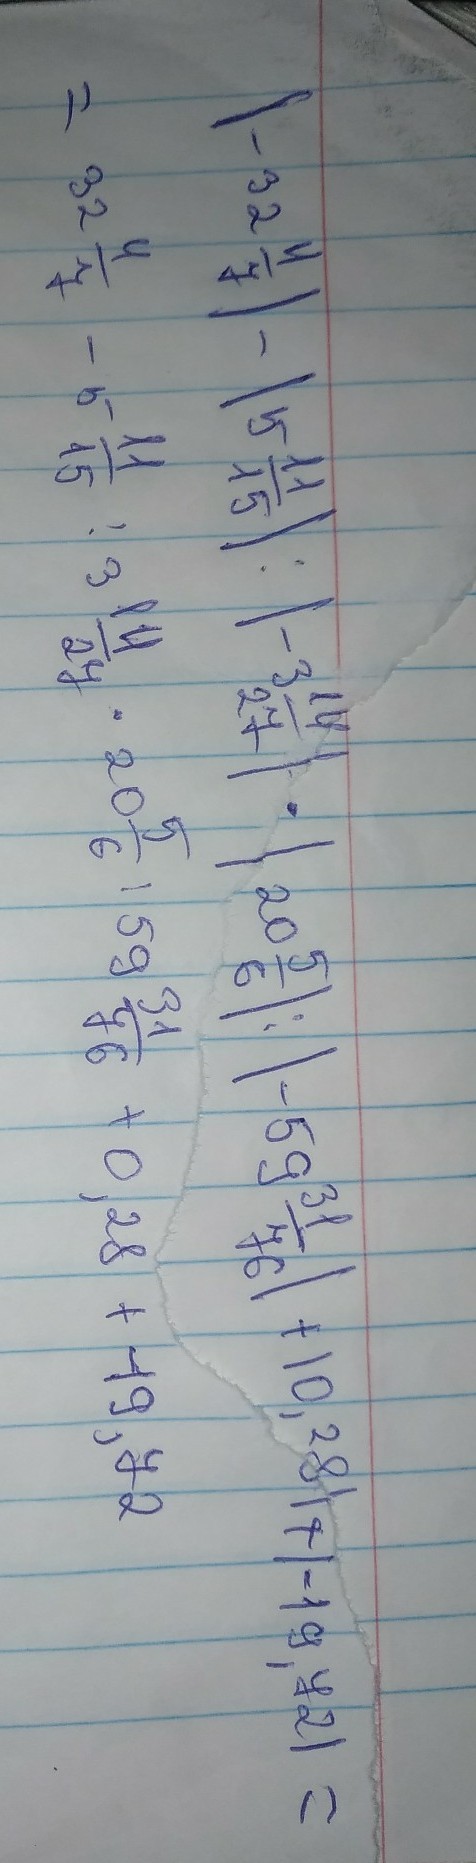 |-32 4/7| - |5 11/15| : |-3 14/27| · |20 5/6| : |-59 31/76| + |0,28| + |-19,72| =
= 32 4/7 - 5 11/15 : 3 14/27 · 20 5/6 : 59 31/76 + 0,28 + 19,72